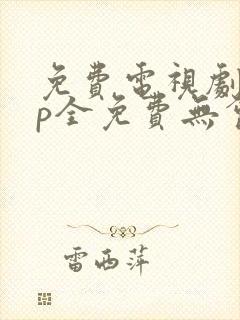 免費電視劇
p全免費無
雷西萍